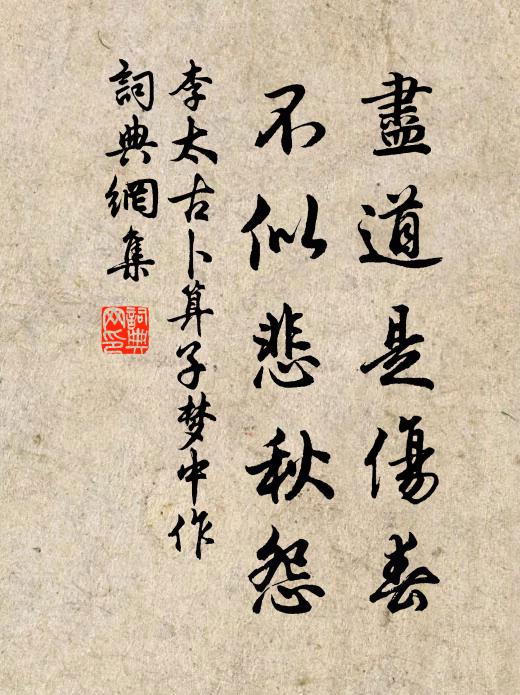 盡道是傷春
不似悲秋怨
李太古卜算子梦中作
詞典網集
詞典
网印